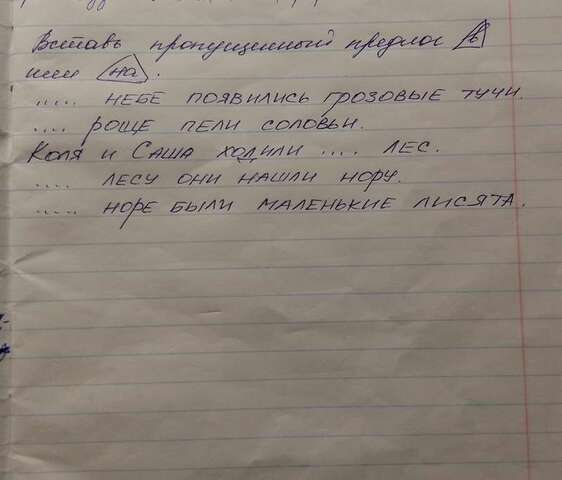 Вставь пропущенный предлог в
или на.
..... НЕБЕ ПОЯВИЛИСЬ ГРОЗОВЫЕ ТУЧИ.
.... РОЩЕ ПЕЛИ СОЛОВЬИ.
КОЛЯ И САША ХОДИЛИ .... ЛЕС.
.... ЛЕСУ ОНИ НАШЛИ НОРУ.
..... НОРЕ БЫЛИ МАЛЕНЬКИЕ ЛИСЯТА.